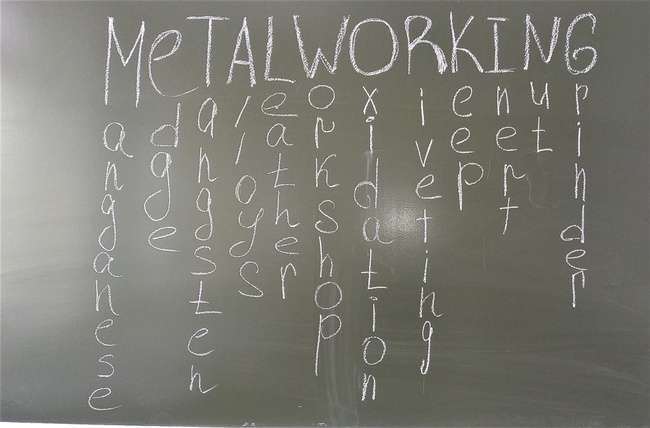 METALWORKING
anganese
dge
angsten
lloys
eather
orkshop
xidation
iveting
eep
nert
ut
rinder